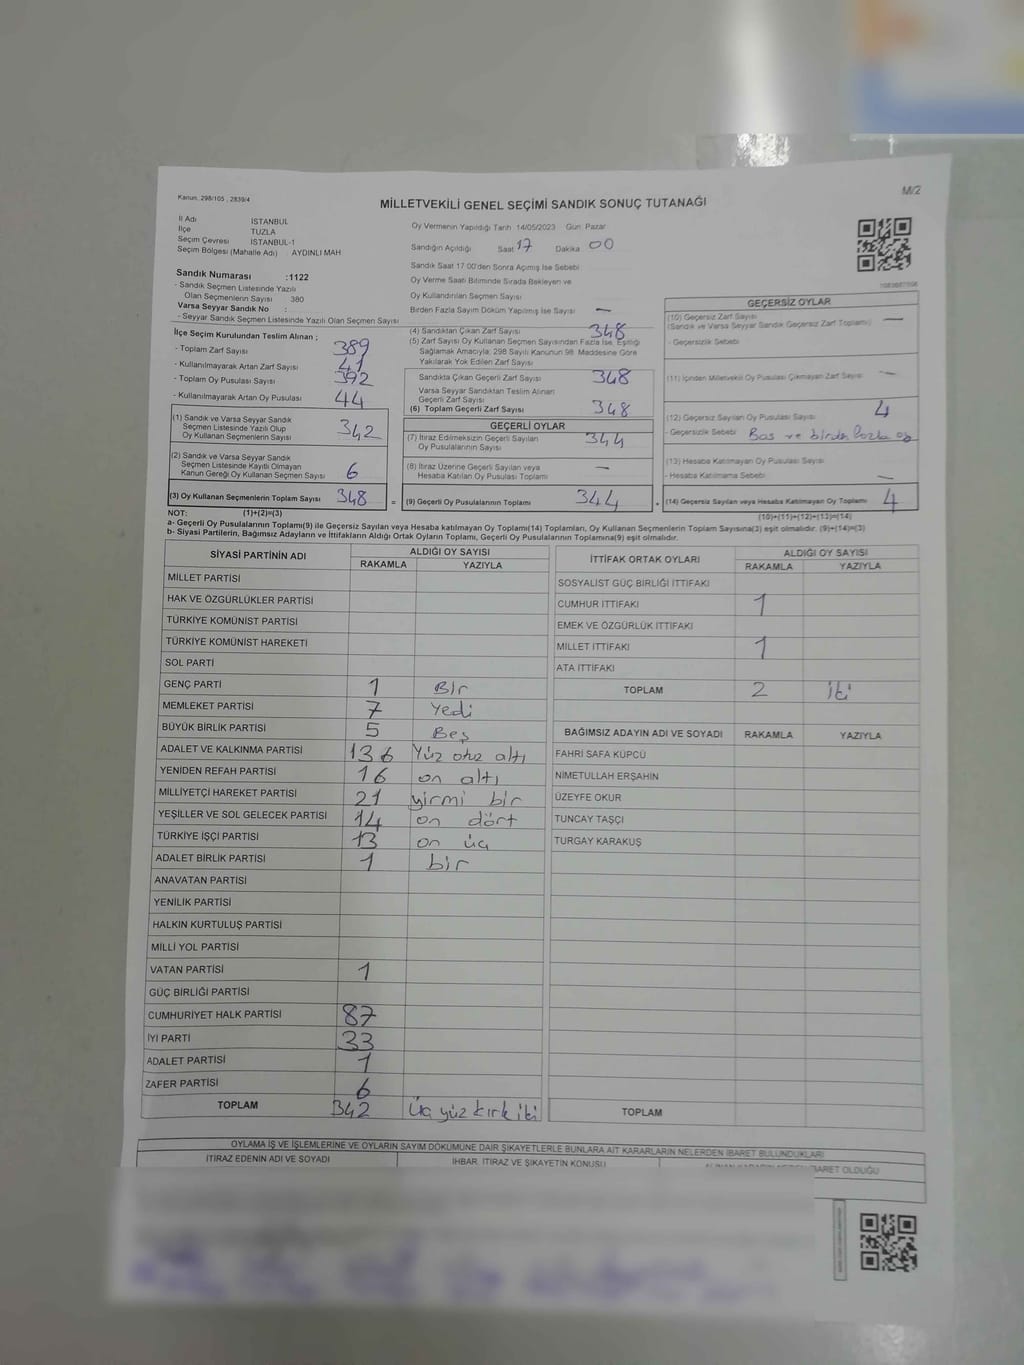 Kanun, 298/105 , 2839/4
M/2
MİLLETVEKİLİ GENEL SEÇİMİ SANDIK SONUÇ TUTANAĞI
İl Adı İSTANBUL
İlçe TUZLA
Seçim Çevresi İSTANBUL-1
Seçim Bölgesi (Mahalle Adı) AYDINLI MAH
Sandık Numarası :1122
- Sandık Seçmen Listesinde Yazılı
Olan Seçmenlerin Sayısı 380
Varsa Seyyar Sandık No :
- Seyyar Sandık Seçmen Listesinde Yazılı Olan Seçmen Sayısı
Oy Vermenin Yapıldığı Tarih 14/05/2023 Gün: Pazar
Sandığın Açıldığı Saat 17 Dakika 00
Sandık Saat 17 00'den Sonra Açımış İse Sebebi
Oy Verme Saati Bitiminde Sırada Bekleyen ve
Oy Kullandırılan Seçmen Sayısı
Birden Fazla Sayım Döküm Yapılmış İse Sayısı —
İlçe Seçim Kurulundan Teslim Alınan ;
- Toplam Zarf Sayısı 389
- Kullanılmayarak Artan Zarf Sayısı 41
- Toplam Oy Pusulası Sayısı 392
- Kullanılmayarak Artan Oy Pusulası 44
(1) Sandık ve Varsa Seyyar Sandık
Seçmen Listesinde Yazılı Olup
Oy Kullanan Seçmenlerin Sayısı 342
(2) Sandık ve Varsa Seyyar Sandık
Seçmen Listesinde Kayıtlı Olmayan
Kanun Gereği Oy Kullanan Seçmen Sayısı 6
(3) Oy Kullanan Seçmenlerin Toplam Sayısı 348 =
(4) Sandıktan Çıkan Zarf Sayısı 348
(5) Zarf Sayısı Oy Kullanan Seçmen Sayısından Fazla İse, Eşitliği
Sağlamak Amacıyla; 298 Sayılı Kanunun 98. Maddesine Göre
Yakılarak Yok Edilen Zarf Sayısı
Sandıkta Çıkan Geçerli Zarf Sayısı 348
Varsa Seyyar Sandıktan Teslim Alınan
Geçerli Zarf Sayısı
(6) Toplam Geçerli Zarf Sayısı 348
GEÇERLİ OYLAR
(7) İtiraz Edilmeksizin Geçerli Sayılan
Oy Pusulalarının Sayısı 344
(8) İtiraz Üzerine Geçerli Sayılan veya
Hesaba Katılan Oy Pusulası Toplamı —
(9) Geçerli Oy Pusulalarının Toplamı 344
GEÇERSİZ OYLAR
(10) Geçersiz Zarf Sayısı
(Sandık ve Varsa Seyyar Sandık Geçersiz Zarf Toplamı) —
- Geçersizlik Sebebi
(11) İçinden Milletvekili Oy Pusulası Çıkmayan Zarf Sayısı —
(12) Geçersiz Sayılan Oy Pusulası Sayısı 4
- Geçersizlik Sebebi Boş ve birden fazla oy
(13) Hesaba Katılmayan Oy Pusulası Sayısı
- Hesaba Katılmama Sebebi —
(14) Geçersiz Sayılan veya Hesaba Katılmayan Oy Toplamı 4
NOT: (1)+(2)=(3) (10)+(11)+(12)+(13)=(14)
a- Geçerli Oy Pusulalarının Toplamı(9) ile Geçersiz Sayılan veya Hesaba katılmayan Oy Toplamı(14) Toplamları, Oy Kullanan Seçmenlerin Toplam Sayısına(3) eşit olmalıdır. (9)+(14)=(3)
b- Siyasi Partilerin, Bağımsız Adayların ve İttifakların Aldığı Ortak Oyların Toplamı, Geçerli Oy Pusulalarının Toplamına(9) eşit olmalıdır.
SİYASİ PARTİNİN ADI ALDIĞI OY SAYISI
RAKAMLA YAZIYLA
MİLLET PARTİSİ
HAK VE ÖZGÜRLÜKLER PARTİSİ
TÜRKİYE KOMÜNİST PARTİSİ
TÜRKİYE KOMÜNİST HAREKETİ
SOL PARTİ
GENÇ PARTİ 1 Bir
MEMLEKET PARTİSİ 7 Yedi
BÜYÜK BİRLİK PARTİSİ 5 Beş
ADALET VE KALKINMA PARTİSİ 136 Yüz otuz altı
YENİDEN REFAH PARTİSİ 16 on altı
MİLLİYETÇİ HAREKET PARTİSİ 21 yirmi bir
YEŞİLLER VE SOL GELECEK PARTİSİ 14 on dört
TÜRKİYE İŞÇİ PARTİSİ 13 on üç
ADALET BİRLİK PARTİSİ 1 bir
ANAVATAN PARTİSİ
YENİLİK PARTİSİ
HALKIN KURTULUŞ PARTİSİ
MİLLİ YOL PARTİSİ
VATAN PARTİSİ 1
GÜÇ BİRLİĞİ PARTİSİ
CUMHURİYET HALK PARTİSİ 87
İYİ PARTİ 33
ADALET PARTİSİ 1
ZAFER PARTİSİ 6
TOPLAM 342 Üç yüz kırk iki
İTTİFAK ORTAK OYLARI ALDIĞI OY SAYISI
RAKAMLA YAZIYLA
SOSYALİST GÜÇ BİRLİĞİ İTTİFAKI
CUMHUR İTTİFAKI 1
EMEK VE ÖZGÜRLÜK İTTİFAKI
MİLLET İTTİFAKI 1
ATA İTTİFAKI
TOPLAM 2 iki
BAĞIMSIZ ADAYIN ADI VE SOYADI RAKAMLA YAZIYLA
FAHRİ SAFA KÜPCÜ
NİMETULLAH ERŞAHİN
ÜZEYFE OKUR
TUNCAY TAŞÇI
TURGAY KARAKUŞ
TOPLAM
OYLAMA İŞ VE İŞLEMLERİNE VE OYLARIN SAYIM DÖKÜMÜNE DAİR ŞİKAYETLERLE BUNLARA AİT KARARLARIN NELERDEN İBARET BULUNDUKLARI
İTİRAZ EDENİN ADI VE SOYADI İHBAR, İTİRAZ VE ŞİKAYETİN KONUSU